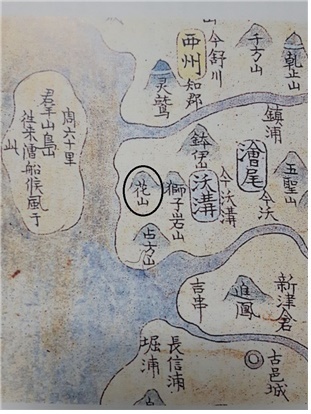 山
西州
今舒川
知郡
千方山
乾止山
灵鷲
鎮浦
周六十里
群山島
往来漕船候風于
山
澮尾
今沃
五聖山
沃溝
今沃溝
花山
獅子岩山
占方山
吉串
進鳳
新津倉
古邑城
長信浦
堀浦
山